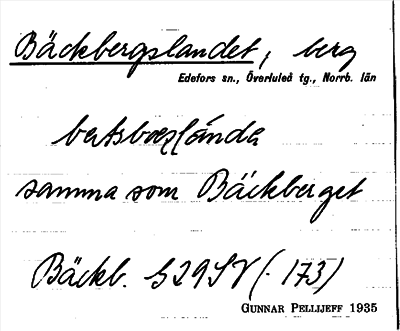 Bäckbergslandet, berg
Edefors sn., Överluleå tg., Norrb. län
samma som Bäckberget
Bäckb. 529SV (. 173)
GUNNAR PELLIJEFF 1935